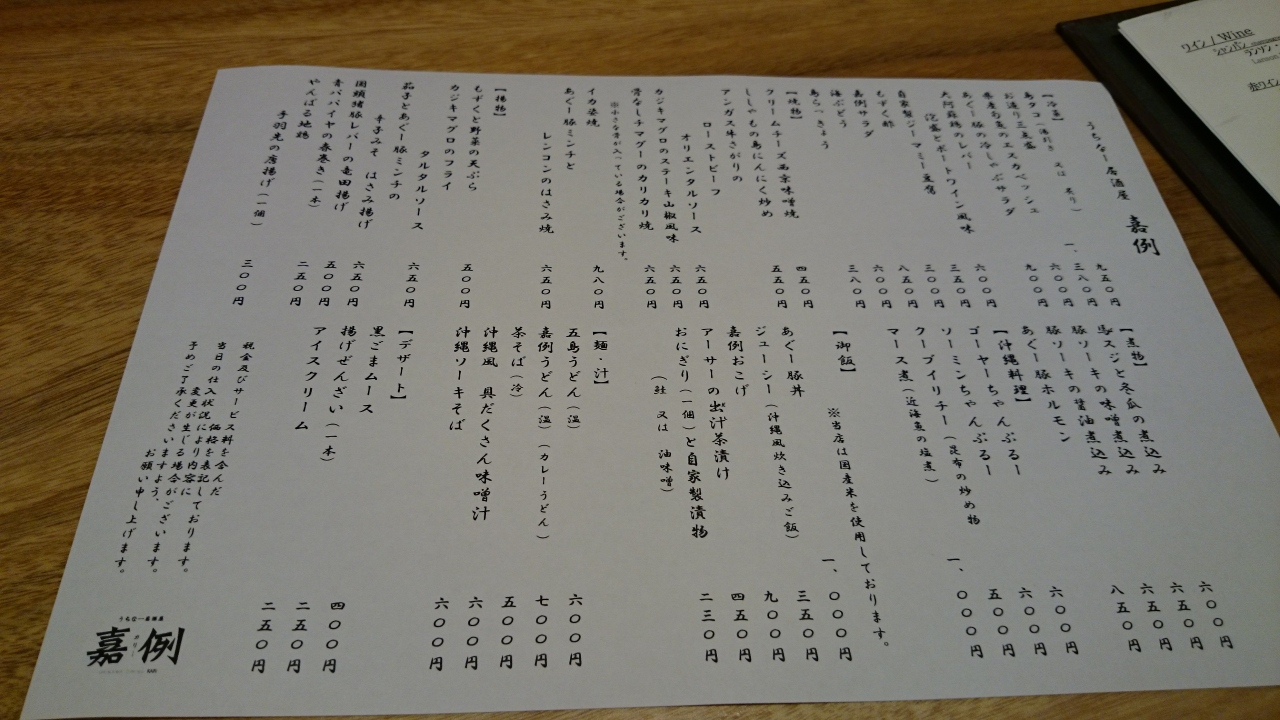 うちなー居酒屋 嘉例
【冷菜】
島タコ(薄引き 又は 炙り) 九五〇円
お造り三点盛 一、三八〇円
県産白身のエスカベッシェ 六〇〇円
あぐー豚の冷しゃぶサラダ 九〇〇円
大阿蘇鶏のレバー
泡盛とポートワイン風味 六〇〇円
自家製ジーマミー豆腐 三五〇円
もずく酢 三〇〇円
嘉例サラダ 八五〇円
海ぶどう 六〇〇円
島らっきょう 三八〇円
【焼物】
クリームチーズ西京味噌焼 四五〇円
ししゃもの島にんにく炒め 五五〇円
アンガス牛さがりの
ローストビーフ
オリエンタルソース 六五〇円
カジキマグロのステーキ山椒風味 六五〇円
骨なしチマグーのカリカリ焼 六五〇円
※小さな骨が入っている場合がございます。
イカ姿焼 九八〇円
あぐー豚ミンチと
レンコンのはさみ焼 六五〇円
【揚物】
もずくと野菜の天ぷら 五〇〇円
カジキマグロのフライ
タルタルソース 六五〇円
茄子とあぐー豚ミンチの
辛子みそ はさみ揚げ 六五〇円
国頭猪豚レバーの竜田揚げ 五〇〇円
青パパイヤの春巻き(一本) 二五〇円
やんばる地鶏
手羽先の唐揚げ(一個) 三〇〇円
【煮物】
馬スジと冬瓜の煮込み 六〇〇円
豚ソーキの味噌煮込み 六五〇円
豚ソーキの醤油煮込み 六五〇円
あぐー豚ホルモン 八五〇円
【沖縄料理】
ゴーヤーちゃんぷるー 六〇〇円
ソーミンちゃんぷるー 六〇〇円
クーブイリチー(昆布の炒め物) 五〇〇円
マース煮(近海魚の塩煮) 一、〇〇〇円
【御飯】
※当店は国産米を使用しております。
あぐー豚丼 一、〇〇〇円
ジューシー(沖縄風炊き込みご飯) 三五〇円
嘉例おこげ 九〇〇円
アーサーの出汁茶漬け 四五〇円
おにぎり(一個)と自家製漬物
(鮭 又は 油味噌) 二三〇円
【麺・汁】
五島うどん(温) 六〇〇円
嘉例うどん(温)(カレーうどん) 七〇〇円
茶そば(冷) 五〇〇円
沖縄風 具だくさん味噌汁 六〇〇円
沖縄ソーキそば 六〇〇円
【デザート】
黒ごまムース 四〇〇円
揚げぜんざい(一本) 二五〇円
アイスクリーム 二五〇円
税金及びサービス料を含んだ
価格を表記しております。
当日の仕入状況により内容に
変更が生じる場合がございます。
予めご了承くださいますよう、
お願い申し上げます。
うちなー居酒屋
嘉例
ワイン / Wine
シャンパン
赤ワイン